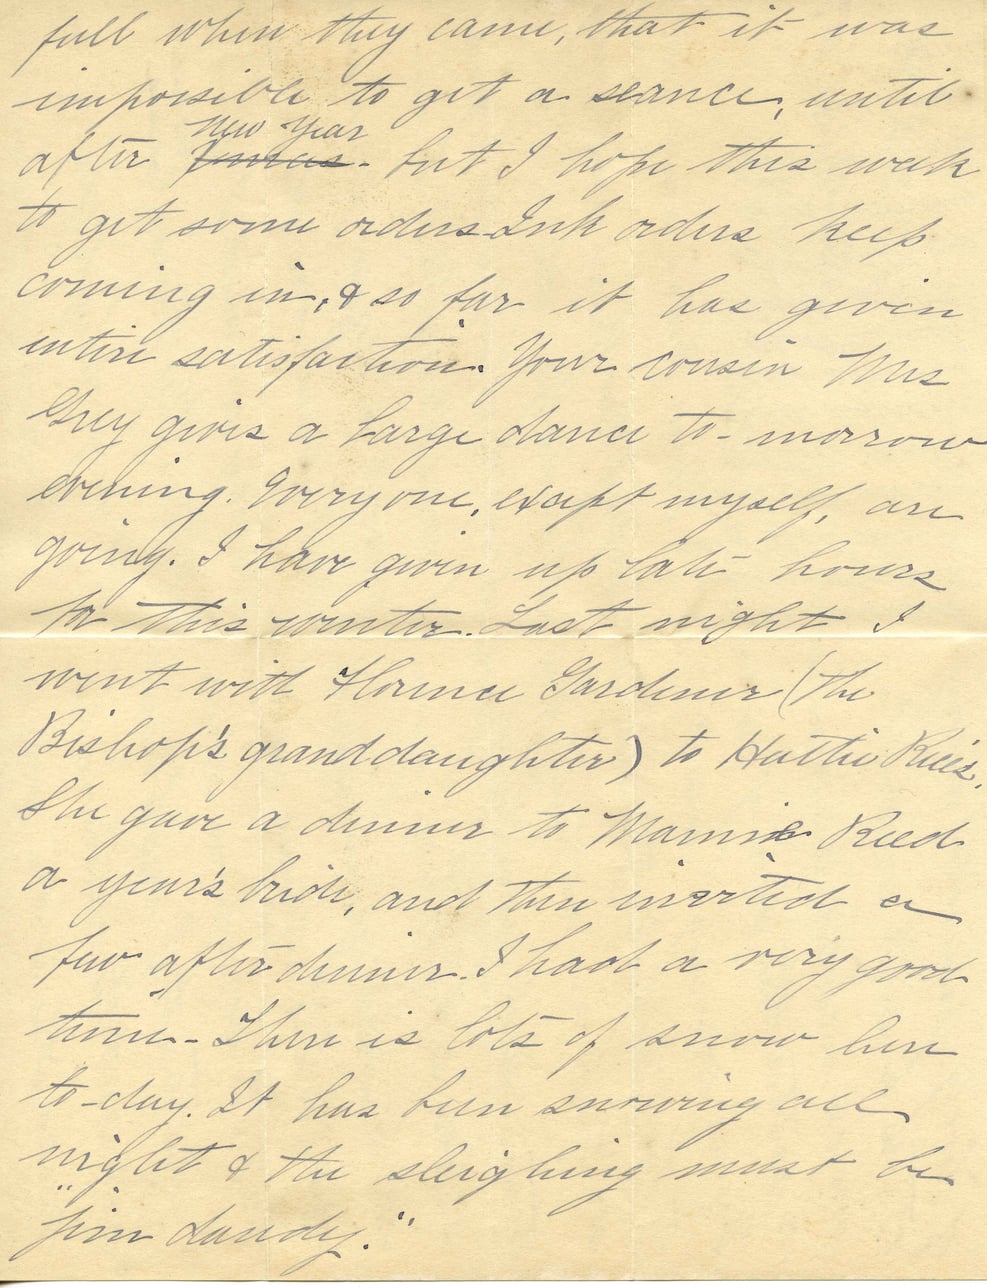 full when they came, that it was
impossible to get a seance, until
New Year
after Xmas - but I hope this week
to get some orders. Ink orders keep
coming in, & so far it has given
entire satisfaction. Your cousin Mrs
Grey gives a large dance to-morrow
evening. Everyone, except myself, are
going. I have given up late hours
for this winter. Last night I
went with Florence Gardiner (the
Bishop's granddaughter) to Hattie
She gave a dinner to Mamie Reed
a year's bride, and then invited a
few after dinner. I had a very good
time - There is lots of snow here
to-day. It has been snowing all
night & the sleighing must be
"jim dandy."